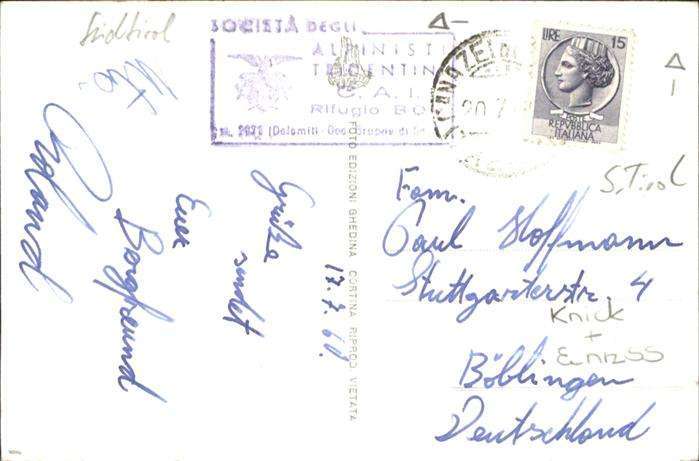 Südtirol
SOCIETÀ DEGLI
ALPINISTI
TRIDENTINI
C.A.I.
Rifugio BO
m. 2871 (Dolomiti
LIRE 15
POSTE
REPVBBLICA
ITALIANA
20.7
S. Tirol
17.7.60.
Grüße
sendet
Euer
Bergfreund
Roland
FOTO EDIZIONI GHEDINA CORTINA RIPROD VIETATA
Fam.
Paul Hoffmann
Stuttgarterstr. 4
Knick
+
Einriss
Böblingen
Deutschland